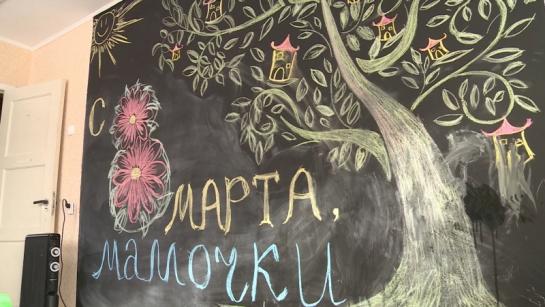 С 8
МАРТА,
мамочки